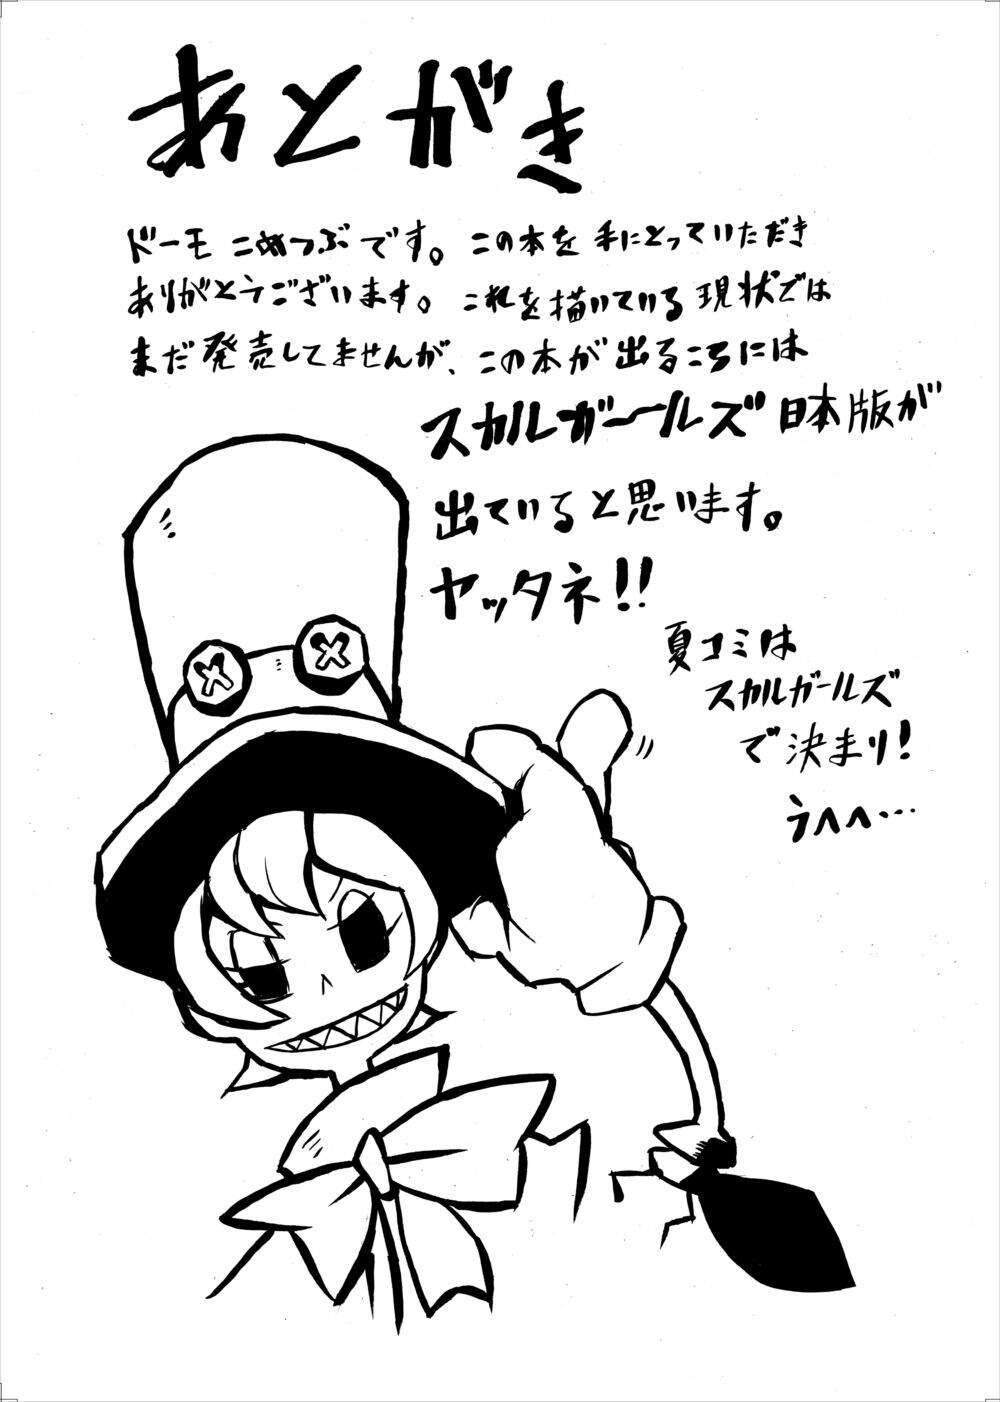 あとがき
ドーモ こめつぶです。この本を 手にとっていただき
ありがとうございます。これを描いている 現状では
まだ 発売してませんが、この本が 出るころには
スカルガールズ 日本版が
出ていると思います。
ヤッタネ!!
夏コミは
スカルガールズ
で決まり!
うへへ…